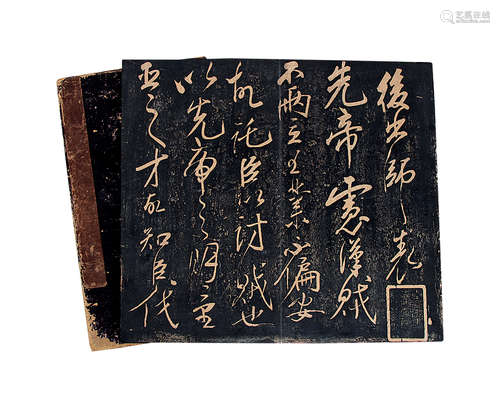 後出師之表
先帝慮漢賊
不兩立王業不偏安
故託臣以討賊也
以先帝之明量
臣之才故知臣伐
艺狐在线